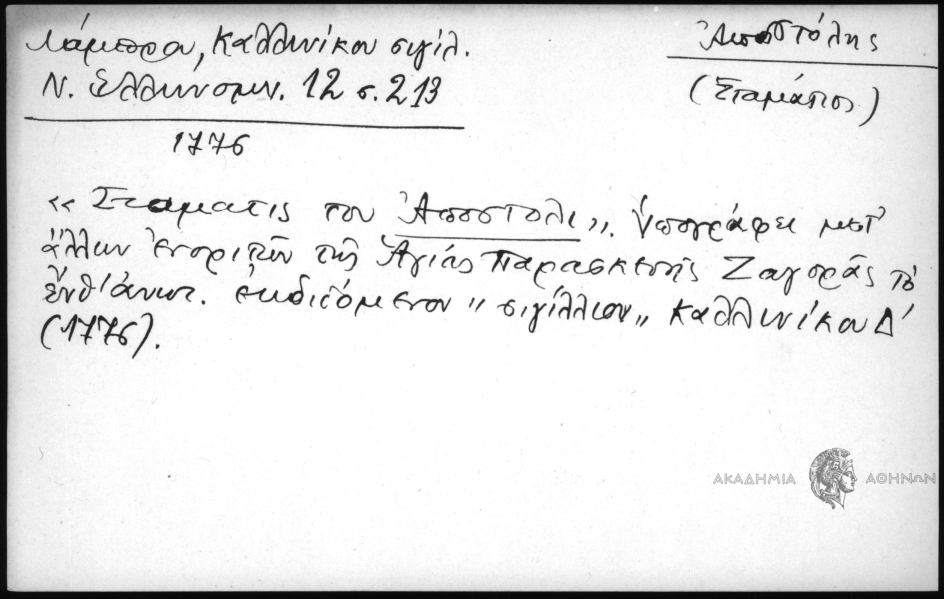 Λάμπρου, Καλλινίκου σιγίλ.
Ν. Ἑλληνομν. 12 σ. 213
1776
Ἀποστόλης
(Σταμάτιος)
« Σταματις του Ἀποστολι ». Ὑπογράφει μετ'
ἄλλων ἐνοριτῶν τῆς Ἁγίας Παρασκευῆς Ζαγορᾶς τὸ
ἐνθ' ἀνωτ. ἐκδιδόμενον " σιγίλλιον " Καλλινίκου Δ'
(1776).
ΑΚΑΔΗΜΙΑ ΑΘΗΝΩΝ